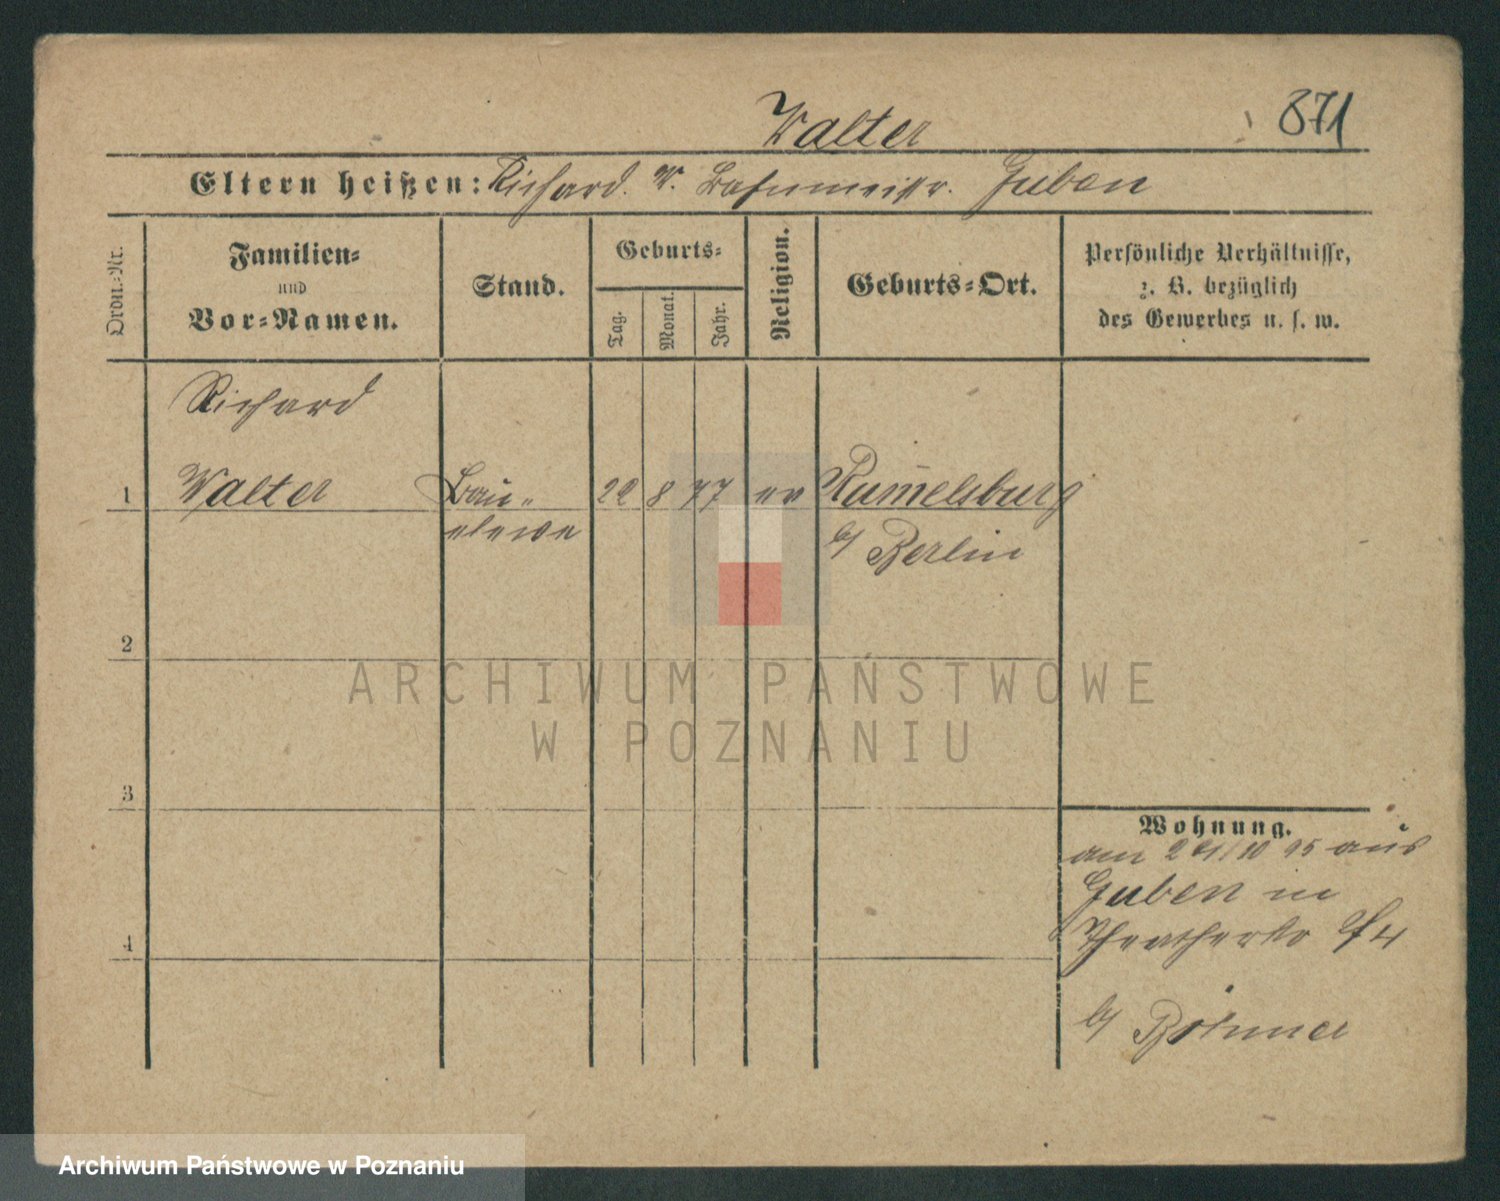 Walter
871
Eltern heißen: Richard. W. Bahnmeistr. Guben
Ordn.-Nr.
Familien-
und
Vor-Namen.
Stand.
Geburts-
Tag.
Monat.
Jahr.
Religion.
Geburts-Ort.
Persönliche Verhältnisse,
z. B. bezüglich
des Gewerbes u. s. w.
Richard
1 Walter Bau- 22 8 77 ev Rum̄elsburg
eleve b/ Berlin
2
3
4
Wohnung.
am 10 95 aus
Guben in
b/ Böhmer
ARCHIWUM PAŃSTWOWE
W POZNANIU
Archiwum Państwowe w Poznaniu